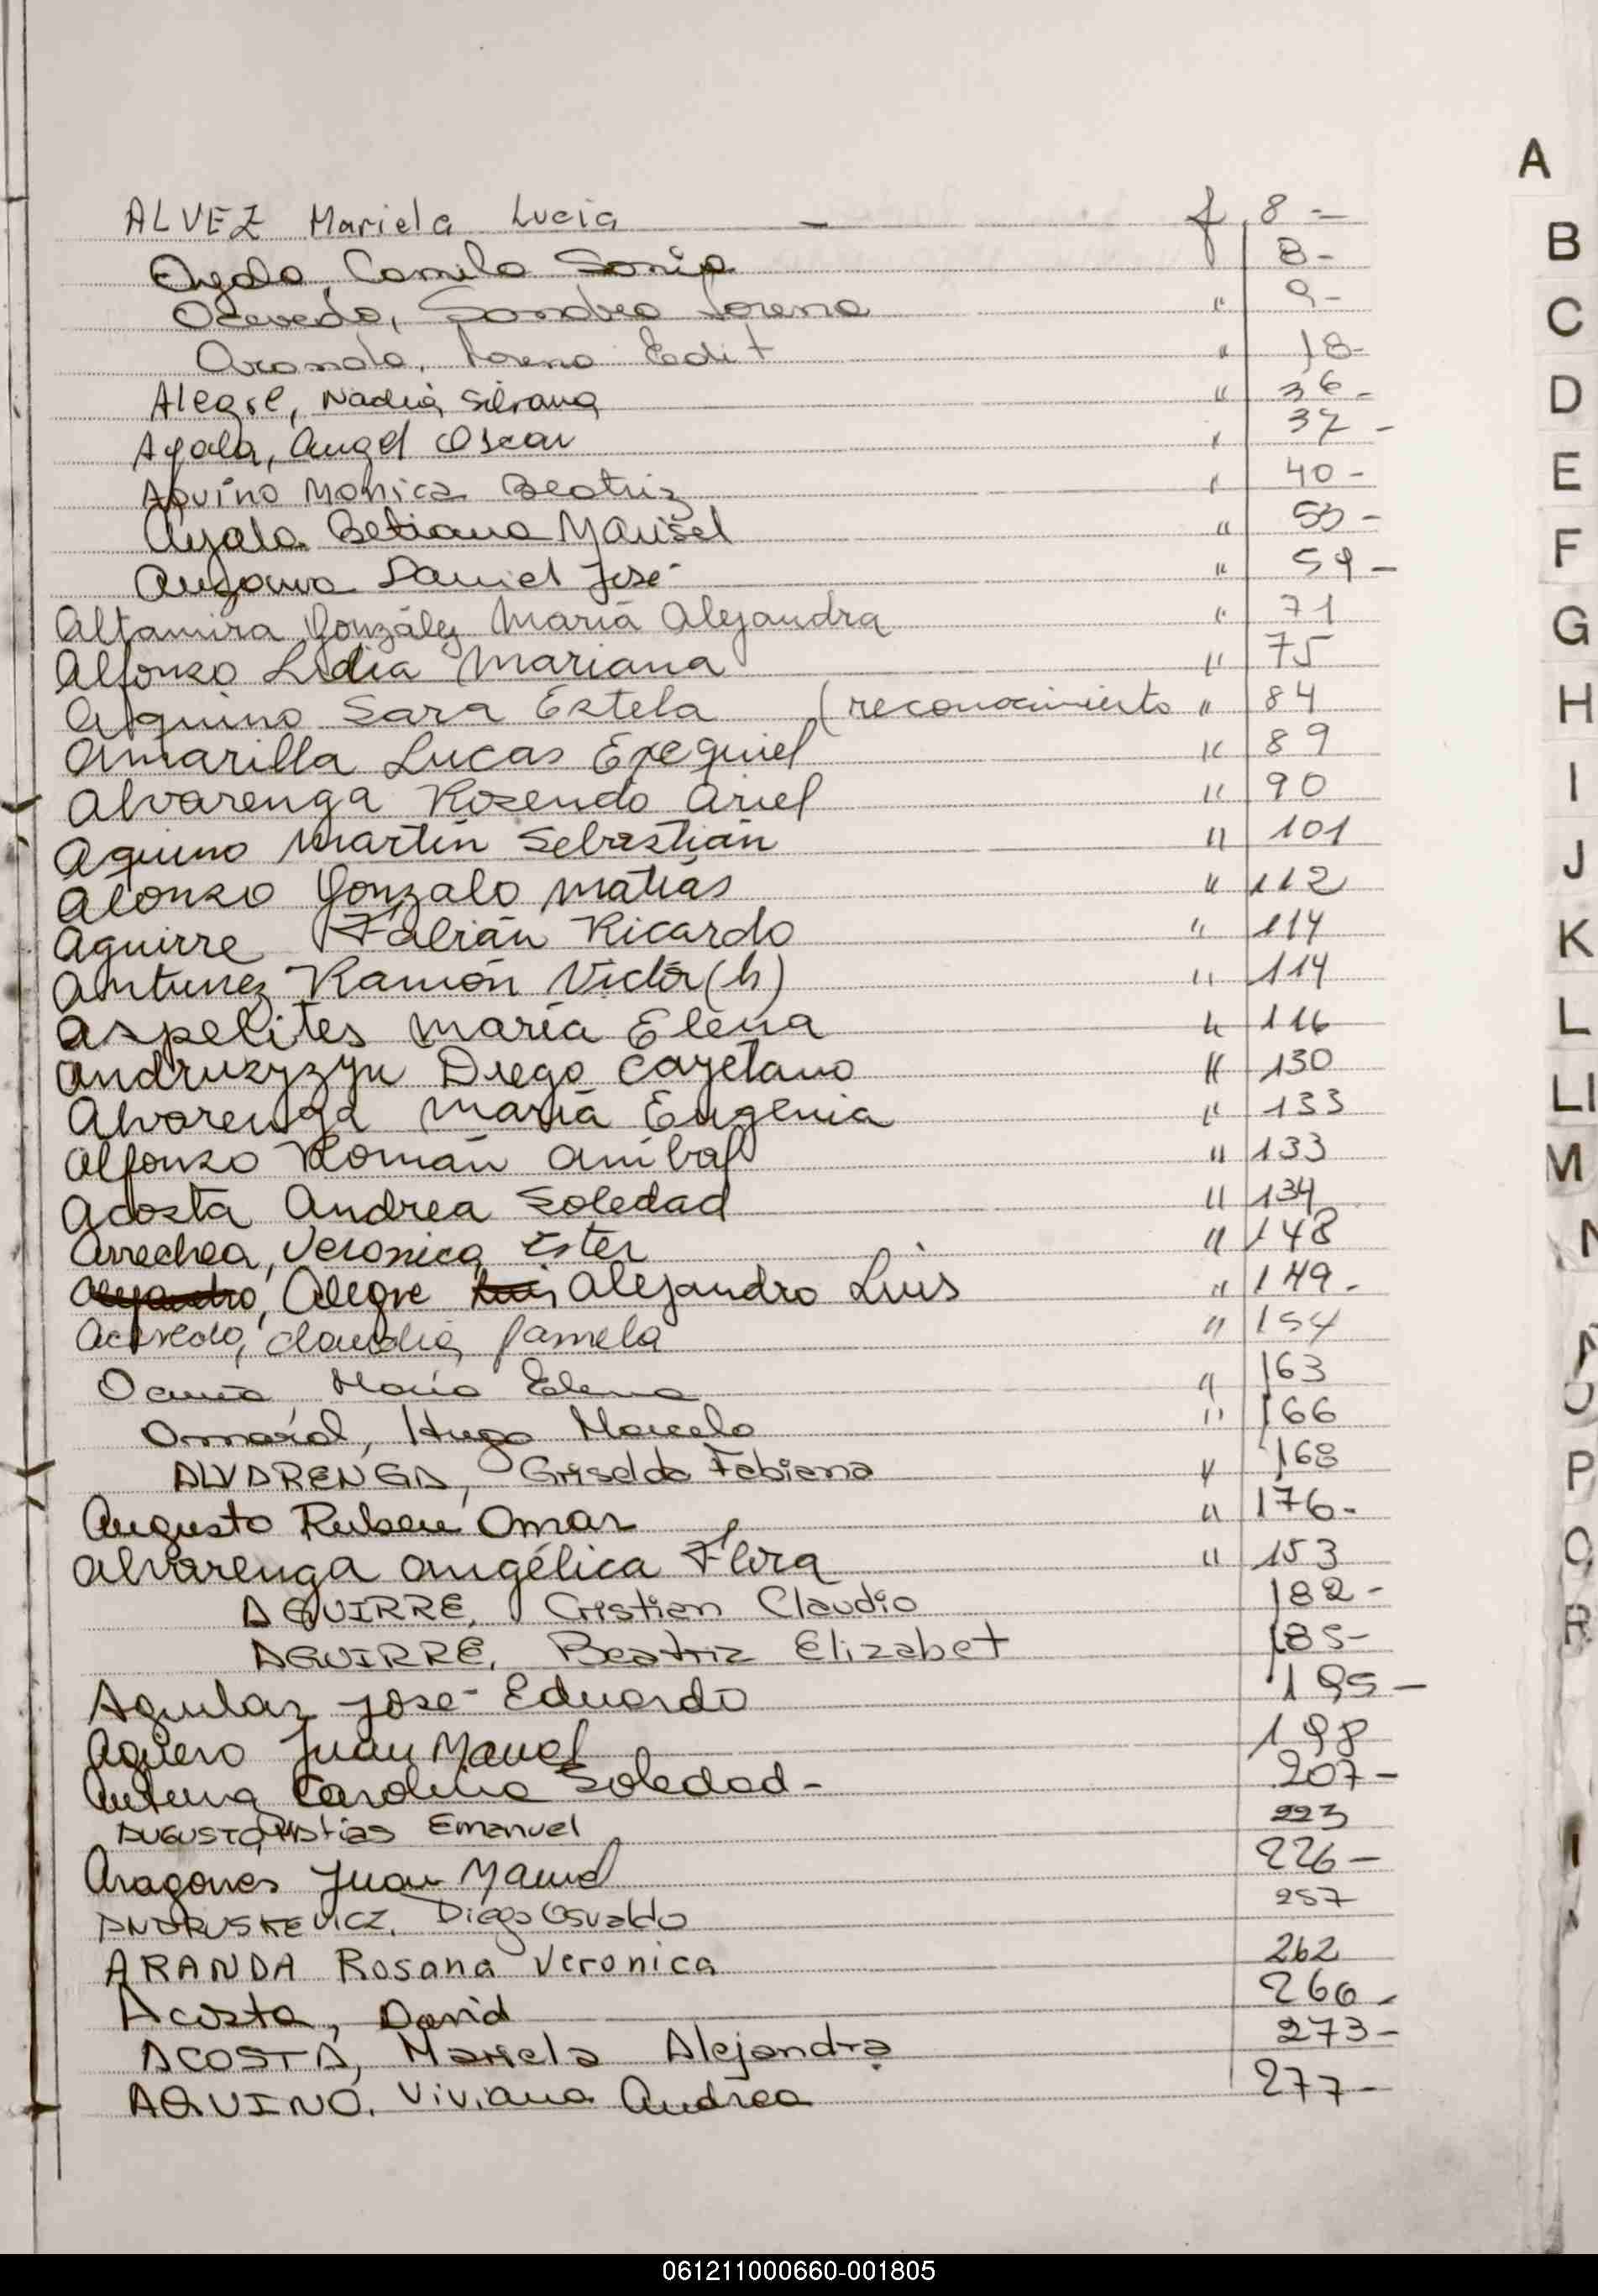 ALVEZ Mariela Lucia — f. 8 -
Ayala, Camila Sonia 8-
Acevedo, Sandra Lorena " 9-
Aranda, Lorena Edit " 18-
Alegre, Nadia Silvana " 36-
Ayala, Angel Oscar " 37-
Aquino Monica Beatriz " 40-
Ayala Betiana Marisel " 53-
Daniel José " 59-
Altamira González María Alejandra " 71
Alfonzo Lidia Mariana " 75
Aquino Sara Estela (reconocimiento " 84
Amarilla Lucas Exequiel " 89
Alvarenga Rosendo Ariel " 90
Aquino Martín Sebastián " 101
Alonzo Gonzalo Matías " 112
Aguirre Fabián Ricardo " 114
Antunez Ramón Victor (h) " 114
Aspelites María Elena " 116
Andruzyzyn Diego Cayetano " 130
Alvarenga María Eugenia " 133
Alfonzo Román Aníbal " 133
Acosta Andrea Soledad " 134
Arrechea, Veronica Ester " 148
Alejandro, Alegre Luis Alejandro Luis " 149-
Acevedo, Claudia Pamela " 154
Acuña María Elena " 163
Amaral, Hugo Marcelo " 166
ALVARENGA, Griselda Fabiana " 168
Augusto Ruben Omar " 176-
Alvarenga Angélica Flora " 153
AGUIRRE, Cristian Claudio 182-
AGUIRRE, Beatriz Elizabet 185-
Aguilar José Eduardo 195-
Agüero Juan Manuel 198
Carolina Soledad- 207-
AUGUSTO, Matias Emanuel 223
Aragones Juan Manuel 226-
ANDRUSKEVICZ, Diego Osvaldo 257
ARANDA Rosana Veronica 262
Acosta, David 266-
ACOSTA, Mariela Alejandra 273-
AQUINO, Viviana Andrea 277-
A
B
C
D
E
F
G
H
I
J
K
L
Ll
M
N
O
P
Q
R
061211000660-001805